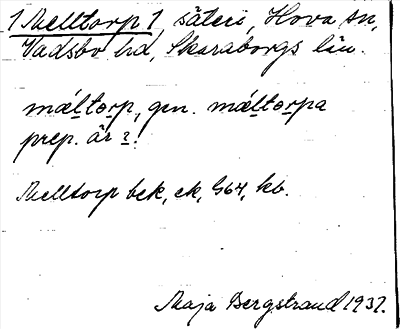 1 Melltorp 1, säteri, Hova sn,
Vadsbo hd, Skaraborgs län.
mæltorp, gen. mæltorpa
prep. är 2.
Melltorp bek, ek, G64, kb.
Maja Bergstrand 1937.